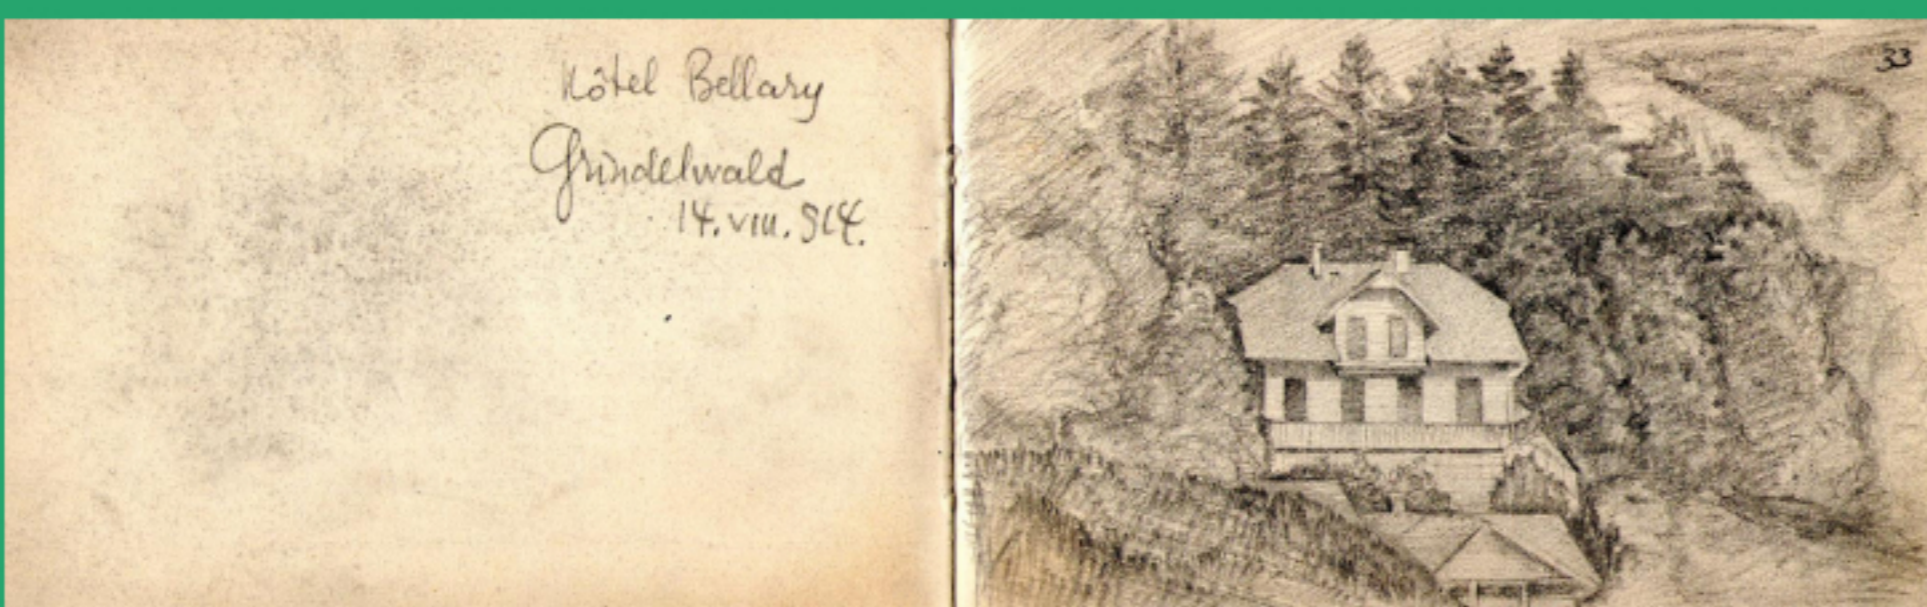 Hôtel Bellary
Grindelwald
14.VIII.914.
33